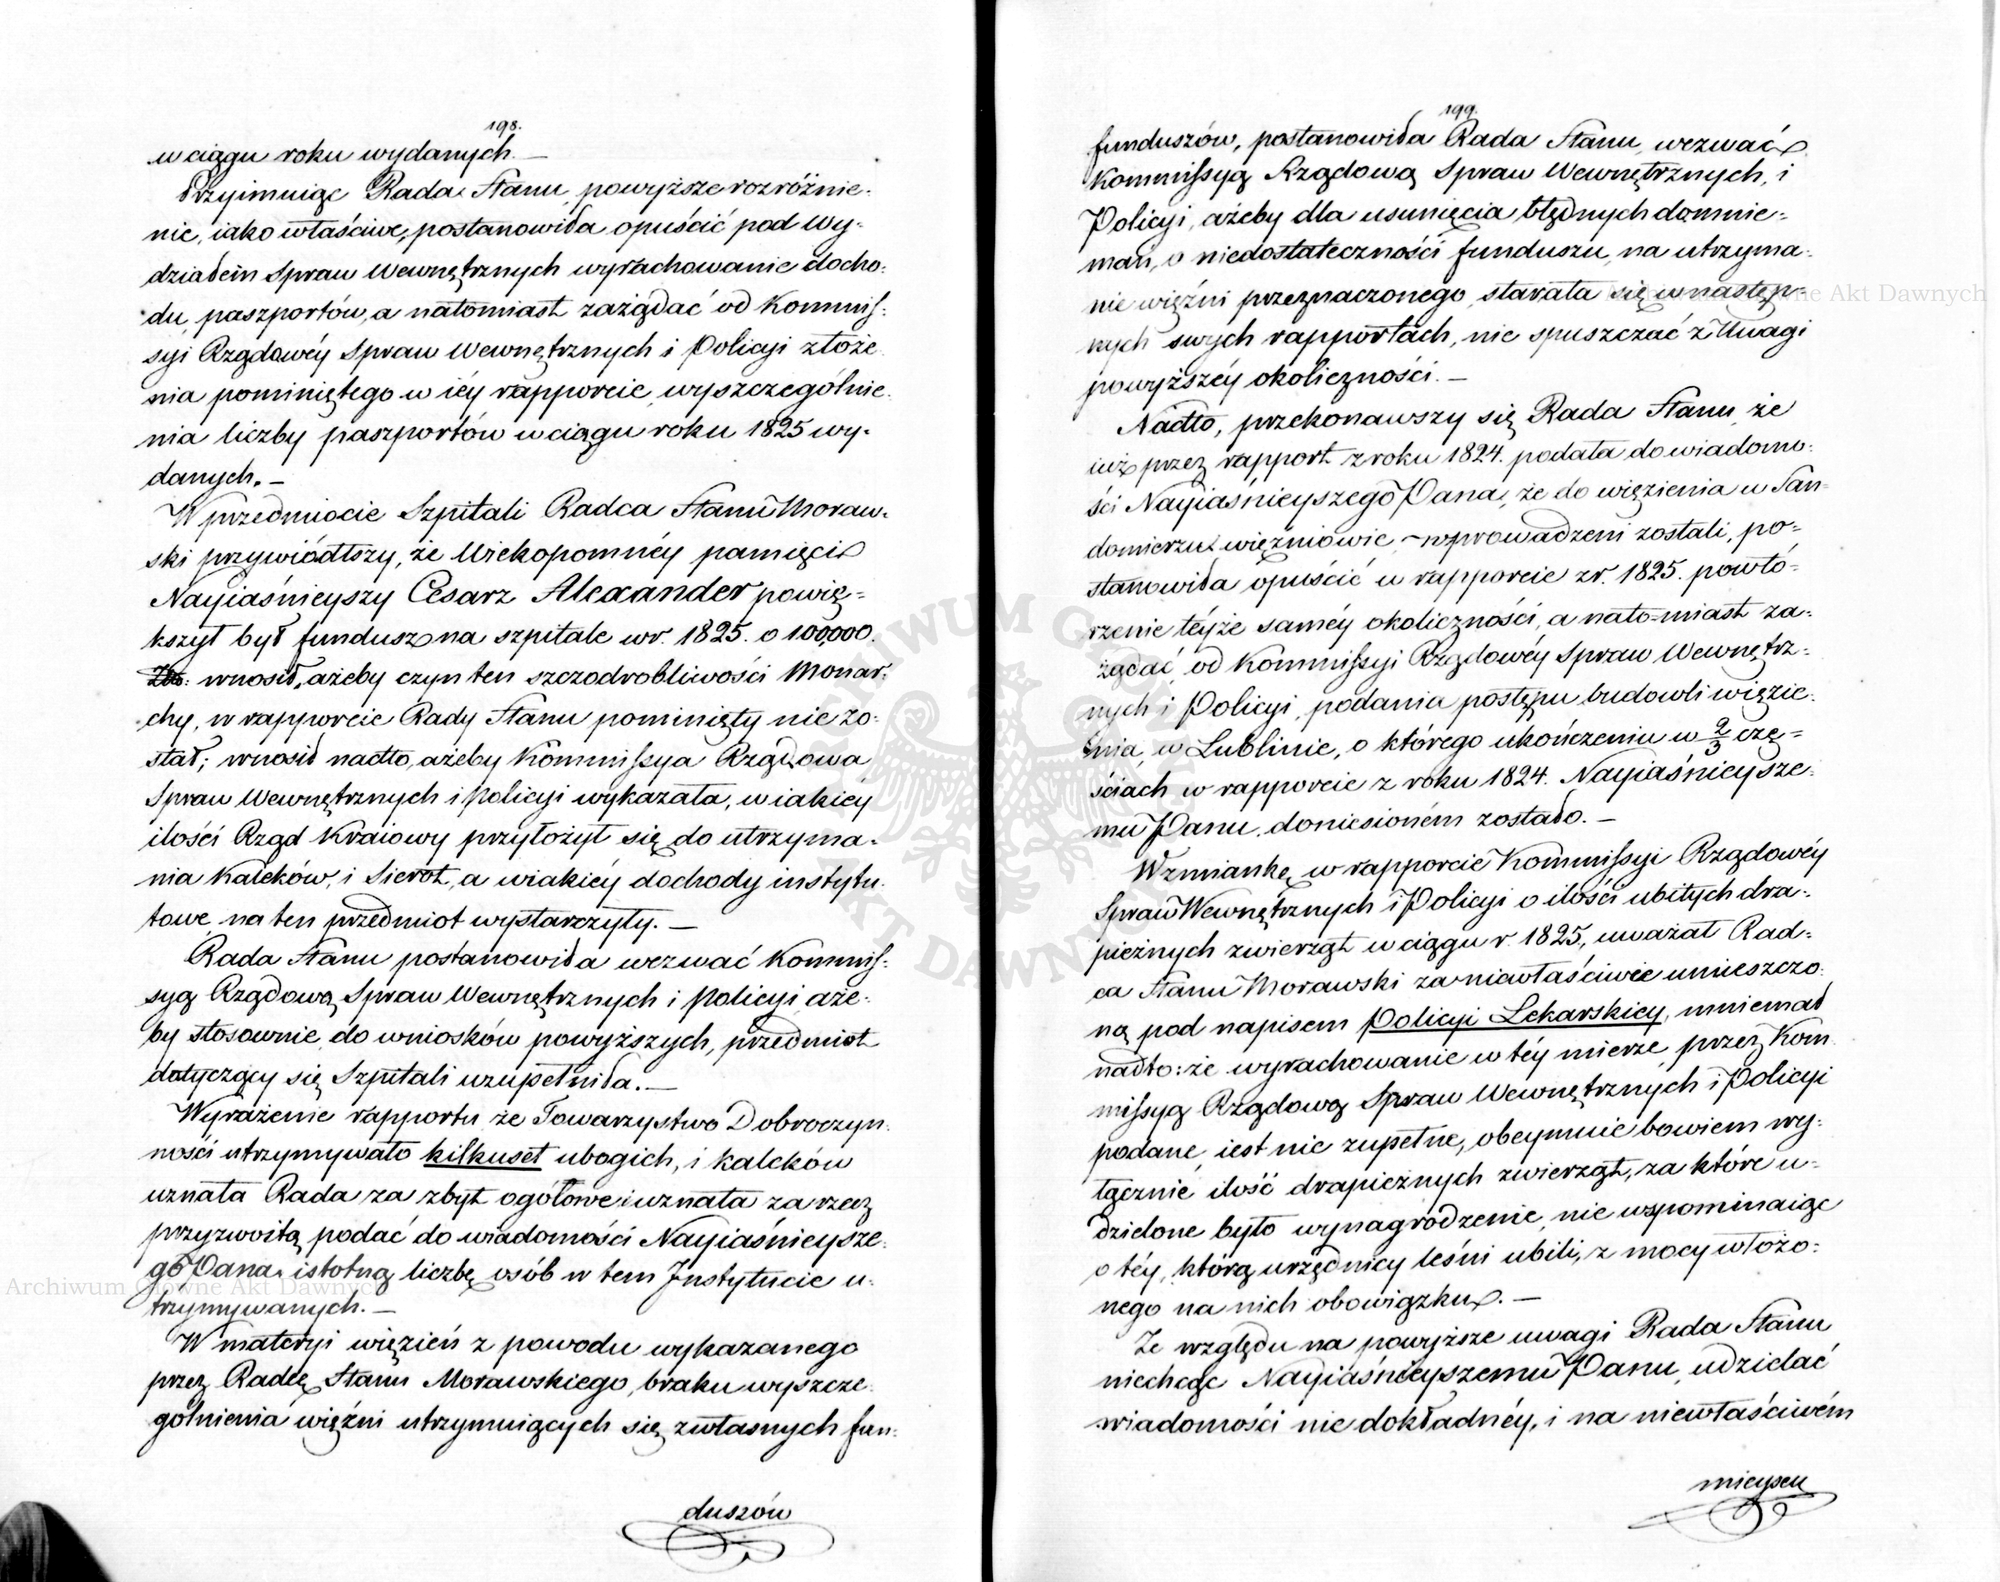 198.
w ciągu roku wydanych. —
Przyimuiąc Rada Stanu, powyższe rozróżnie-
nie, iako właściwe, postanowiła opuścić pod Wy-
działem Spraw Wewnętrznych wyrachowanie docho-
du paszportów, a natomiast zażądać od Kommis-
syi Rządowéy Spraw Wewnętrznych i Policyi złoże
nia pominiętego w iéy rapporcie, wyszczególnie
nia liczby paszportów w ciągu roku 1825 wy-
danych. —
W przedmiocie Szpitali Radca Stanu Moraw-
ski przywiódłszy, że Wiekopomnéy pamięci
Nayiaśnieyszy Cesarz Alexander powię-
kszył był fundusz na szpitale w r. 1825. o 100,000.
Złł: wnosił, ażeby czyn ten szczodrobliwości Monar-
chy, w rapporcie Rady Stanu pominięty nie zo-
stał; wnosił nadto, ażeby Kommissya Rządowa
Spraw Wewnętrznych i Policyi wykazała, w iakiéy
ilości Rząd Kraiowy przyłożył się do utrzyma-
nia Kaleków, i Sierot, a w iakiéy dochody instytu-
towe na ten przedmiot wystarczyły. —
Rada Stanu postanowiła wezwać Kommis-
syą Rządową Spraw Wewnętrznych i Policyi, aże-
by stosownie do wniosków powyższych, przedmiot
dotyczący się Szpitali uzupełniła. —
Wyrażenie rapportu że Towarzystwo Dobroczyn-
ności utrzymywało kilkuset ubogich, i kaleków
uznała Rada za zbyt ogółowe i uznała za rzecz
przyzwoitą podać do wiadomości Nayiaśnieysze-
go Pana istotną liczbę osób w tem Instytucie u-
trzymywanych. —
W materyi więzień z powodu wykazanego
przez Radcę Stanu Morawskiego, braku wyszcze-
gólnienia więźni utrzymuiących się z własnych fun-
duszów
199.
funduszów, postanowiła Rada Stanu, wezwać
Kommissyą Rządową Spraw Wewnętrznych, i
Policyi, ażeby dla usunięcia błędnych domnie-
mań, o niedostateczności funduszu, na utrzyma-
nie więźni przeznaczonego, starała się w następ-
nych swych rapportach, nie spuszczać z Uwagi
powyższéy okoliczności. —
Nadto, przekonawszy się Rada Stanu, że
iuż przez rapport z roku 1824. podała do wiadomo-
ści Nayiaśnieyszego Pana, że do więzienia w San-
domierzu więźniowie, wprowadzeni zostali, po-
stanowiła opuścić w rapporcie z r. 1825. powtó-
rzenie téyże saméy okoliczności, a nato=miast za-
żądać od Kommissyi Rządowéy Spraw Wewnętrz-
nych i Policyi, podania postępu budowli więzie-
nia, w Lublinie, o którego ukończeniu w 2/3 czę-
ściach w rapporcie z roku 1824. Nayiaśnieysze-
mu Panu doniesioném zostało. —
Wzmiankę w rapporcie Kommissyi Rządowéy
Spraw Wewnętrznych i Policyi o ilości ubitych dra-
pieżnych zwierząt w ciągu r. 1825, uważał Rad-
ca Stanu Morawski za niewłaściwie umieszczo-
ną pod napisem Policyi Lekarskiey, mniemał
nadto: że wyrachowanie w téy mierze przez Kom-
missyą Rządową Spraw Wewnętrznych i Policyi
podane, iest nie zupełne, obeymuie bowiem wy-
łącznie ilość drapieżnych zwierząt, za które u-
dzielone było wynagrodzenie, nie wspominaiąc
o téy, którą urzędnicy leśni ubili, z mocy włożo-
nego na nich obowiązku. —
Ze względu na powyższe uwagi Rada Stanu
niechcąc Nayiaśnieyszemu Panu, udzielać
wiadomości nie dokładnéy, i na niewłaściwém
mieyscu
Archiwum Główne Akt Dawnych
Archiwum Główne Akt Dawnych
ARCHIWUM GŁÓWNE AKT DAWNYCH